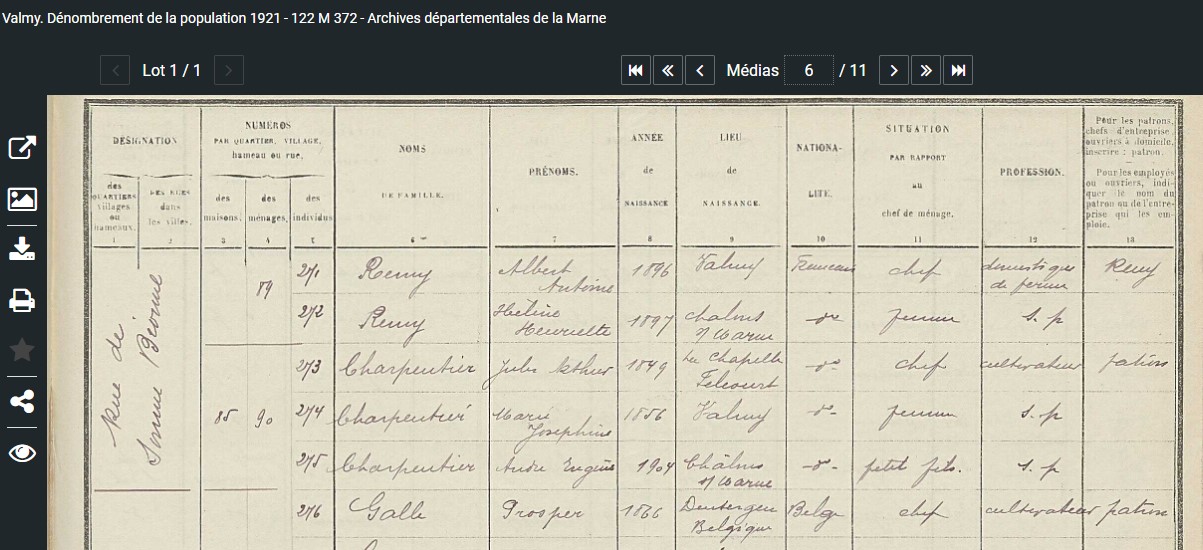 Valmy. Dénombrement de la population 1921 - 122 M 372 - Archives départementales de la Marne
Lot 1 / 1
Médias 6 / 11
DÉSIGNATION
des QUARTIERS villages ou hameaux.
1
DES RUES dans les villes.
2
NUMÉROS
PAR QUARTIER, VILLAGE,
hameau ou rue.
des maisons.
3
des ménages.
4
des individus
5
NOMS
DE FAMILLE.
6
PRÉNOMS.
7
ANNÉE
de
NAISSANCE
8
LIEU
de
NAISSANCE.
9
NATIONA-
LITÉ.
10
SITUATION
PAR RAPPORT
au
chef de ménage.
11
PROFESSION.
12
Pour les patrons,
chefs d'entreprise,
ouvriers à domicile,
inscrire : patron.
Pour les employés
ou ouvriers, indi-
quer le nom du
patron ou de l'entre-
prise qui les em-
ploie.
13
Rue de
Somme Bionne
89 271 Remy Albert Antoine 1896 Valmy Française chef domestique de ferme Remy
272 Remy Hélène Henriette 1897 Chalons s/ Marne do femme s. p
273 Charpentier Jules Arthur 1849 La Chapelle Felcourt do chef cultivateur patron
85 90 274 Charpentier Marie Joséphine 1856 Valmy do femme s. p
275 Charpentier André Eugène 1904 Châlons s/ Marne do petit fils. s. p
276 Galle Prosper 1866 Belgique Belge chef cultivateur patron